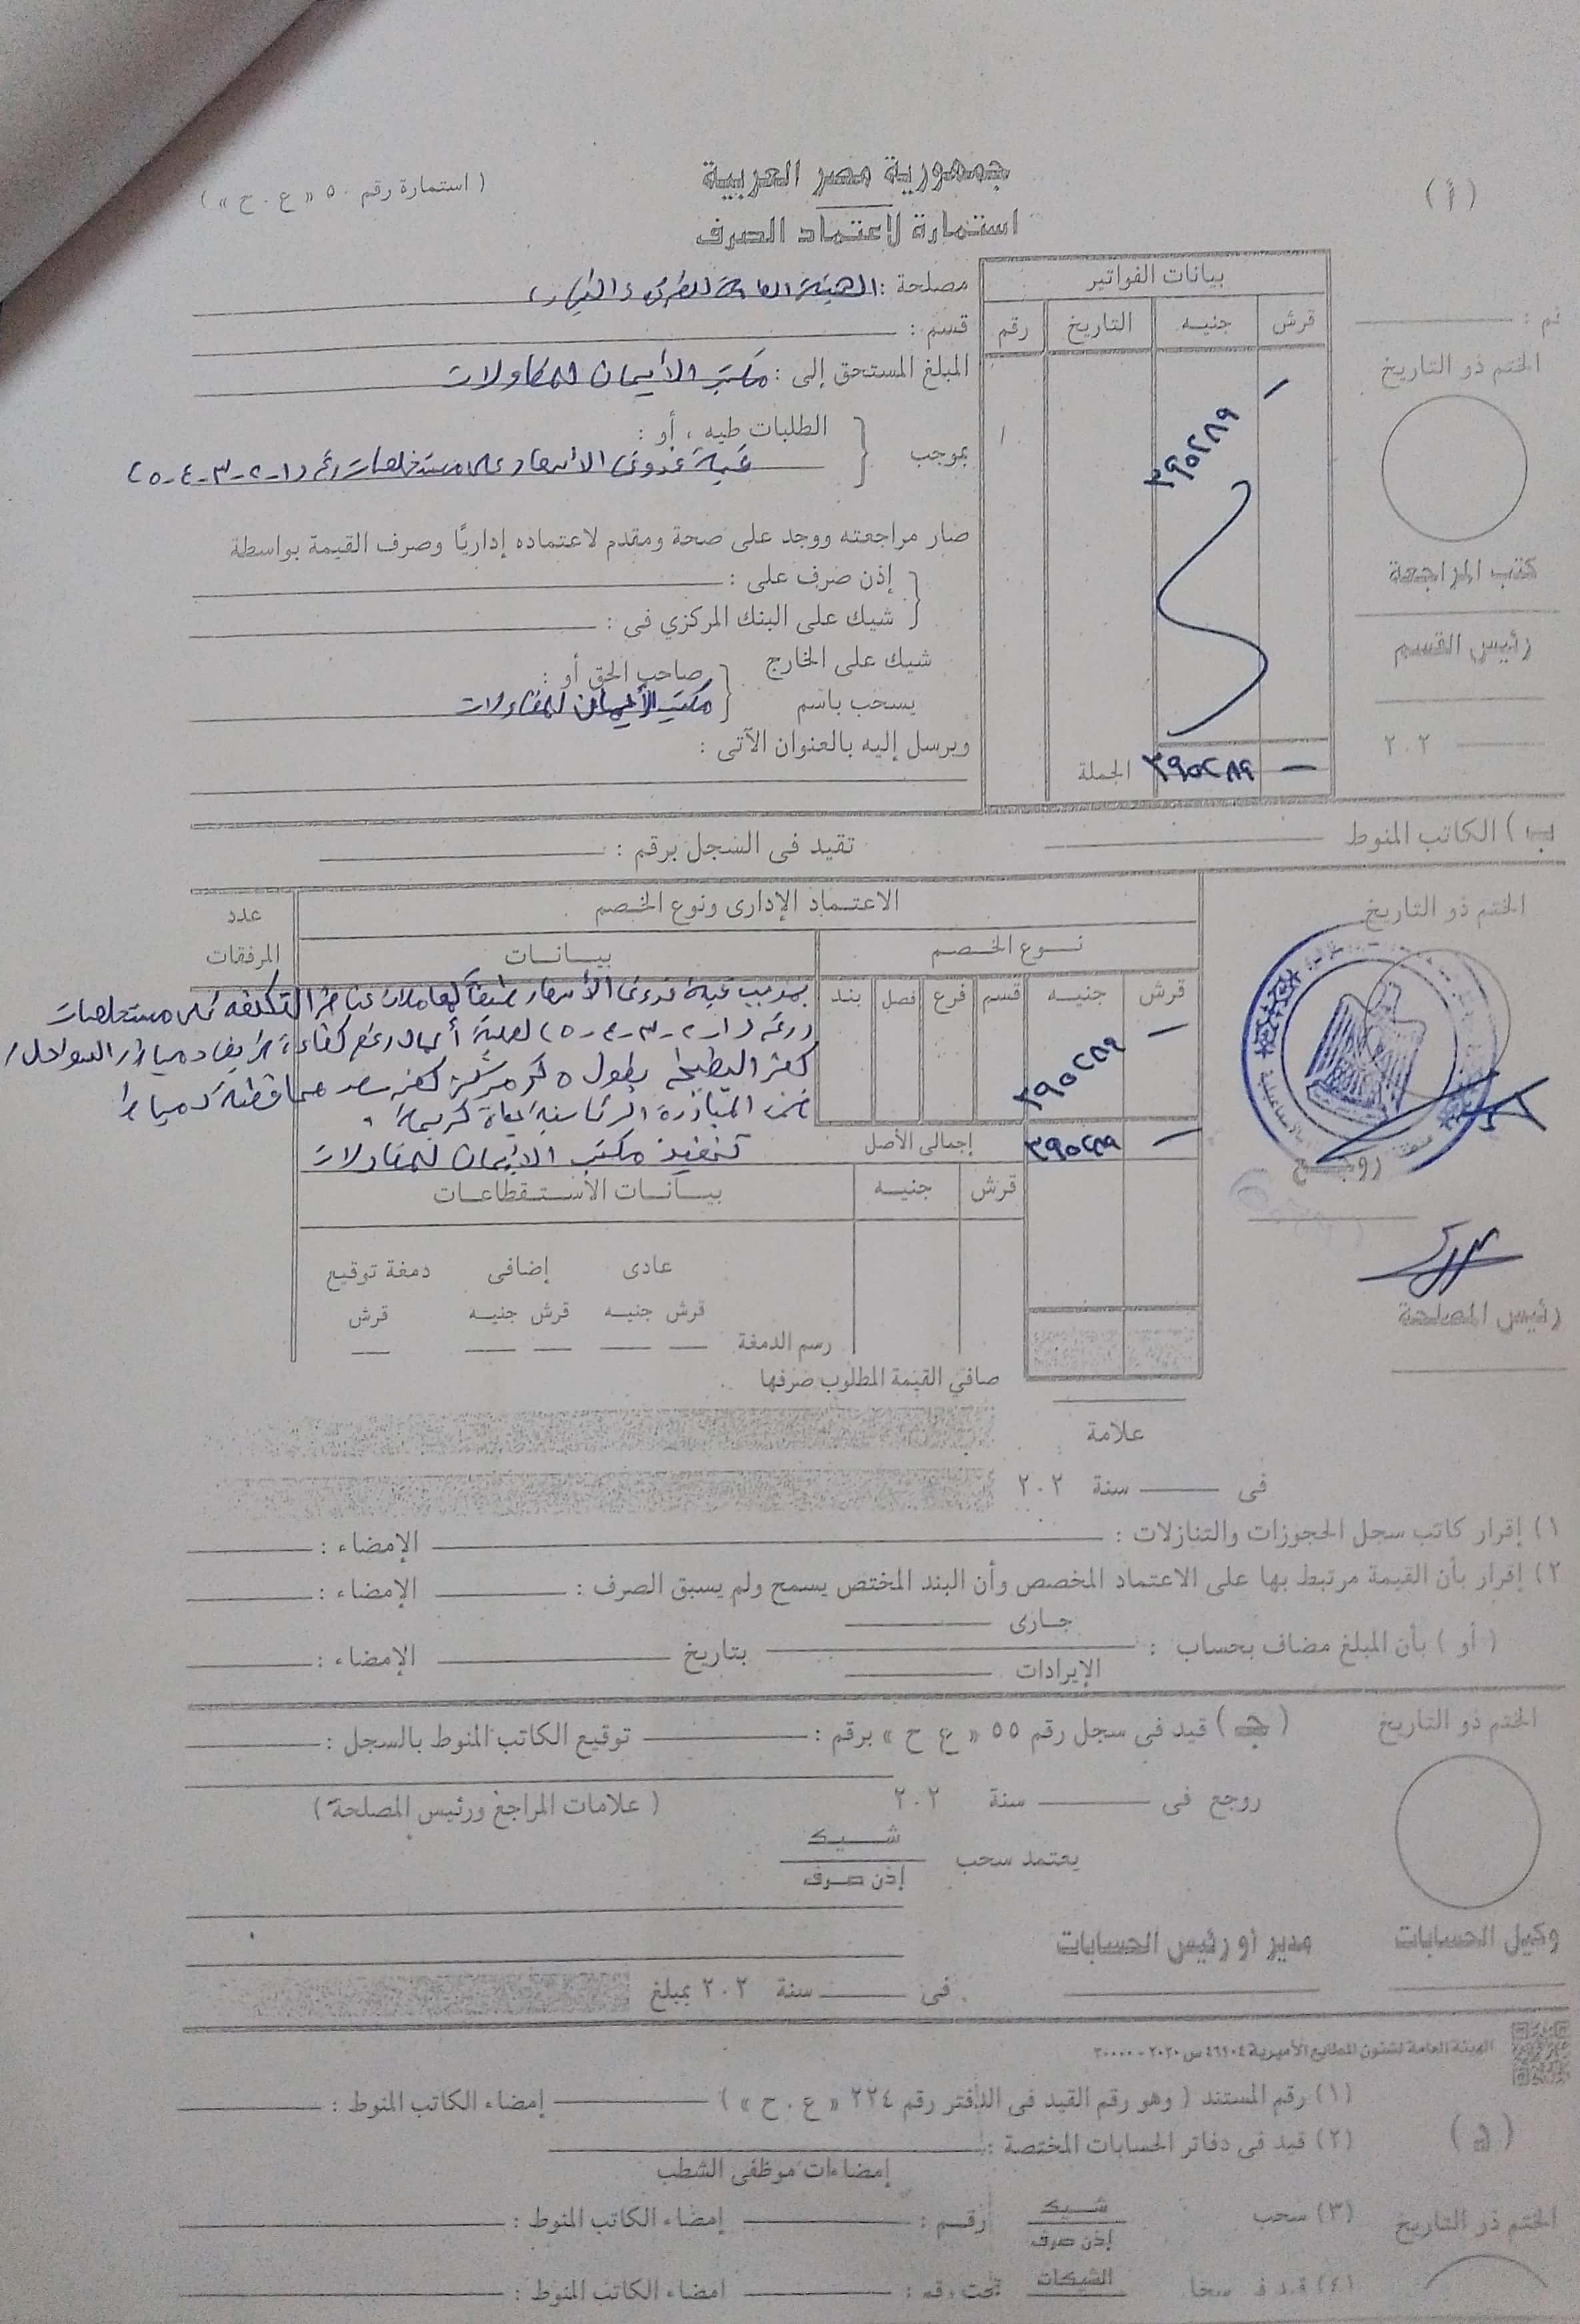 جمهورية مصر العربية
( استمارة رقم ٥٠ « ع . ح » )
( أ )
استمارة لاعتماد الصرف
مصلحة : الهيئة العامة للطرق والكبارى
قسم :
المبلغ المستحق إلى : مكتب الأيمان للمقاولات
الطلبات طيه ، أو :
بموجب
قيمة فروق الأسعار على مستخلصات رقم (١-٢-٣-٤-٥)
صار مراجعته ووجد على صحة ومقدم لاعتماده إداريًا وصرف القيمة بواسطة
إذن صرف على :
شيك على البنك المركزي فى :
شيك على الخارج
صاحب الحق أو :
يسحب باسم
مكتب الأيمان للمقاولات
ويرسل إليه بالعنوان الآتى :
بيانات الفواتير
قرش جنيه التاريخ رقم
١
— ٣٩٥٢٨٩
— ٣٩٥٢٨٩ الجملة
الختم ذو التاريخ
كتب المراجعة
رئيس القسم
٢٠٢
ب ) الكاتب المنوط
تقيد فى السجل برقم :
الختم ذو التاريخ
الاعتماد الإدارى ونوع الخصم
عدد
المرفقات
نوع الخصم
بيانات
قرش جنيه قسم فرع فصل بند
— ٣٩٥٢٨٩
بموجب قيمة فروق الأسعار طبقاً لمعاملات عناصر التكلفة على مستخلصات
رقم (١-٢-٣-٤-٥) لعملية أعمال رفع كفاءة
كفر البطيخ بطول ٥ كم مركز كفر سعد محافظة دمياط
ضمن المبادرة الرئاسية حياة كريمة .
تنفيذ مكتب الايمان للمقاولات
— ٣٩٥٢٨٩ إجمالى الأصل
روجع
قرش جنيه بيانات الاستقطاعات
عادى إضافى دمغة توقيع
قرش جنيه قرش جنيه قرش
رسم الدمغة
رئيس المصلحة
صافي القيمة المطلوب صرفها
علامة
فى سنة ٢٠٢
١) إقرار كاتب سجل الحجوزات والتنازلات : الإمضاء :
٢) إقرار بأن القيمة مرتبط بها على الاعتماد المخصص وأن البند المختص يسمح ولم يسبق الصرف : الإمضاء :
جارى
( أو ) بأن المبلغ مضاف بحساب : بتاريخ الإمضاء :
الإيرادات
الختم ذو التاريخ
( ج ) قيد فى سجل رقم ٥٥ « ع ح » برقم : توقيع الكاتب المنوط بالسجل :
روجع فى سنة ٢٠٢
( علامات المراجع ورئيس المصلحة )
شيك
يعتمد سحب
إذن صرف
وكيل الحسابات
مدير أو رئيس الحسابات
فى سنة ٢٠٢ بمبلغ
(١) رقم المستند ( وهو رقم القيد فى الدفتر رقم ٢٢٤ « ع . ح » ) إمضاء الكاتب المنوط :
(٢) قيد فى دفاتر الحسابات المختصة :
إمضاءات موظفى الشطب
الختم ذو التاريخ
(٣) سحب
شيك
إذن صرف
رقم : إمضاء الكاتب المنوط :
الشيكات
تحت رقم : امضاء الكاتب المنوط :